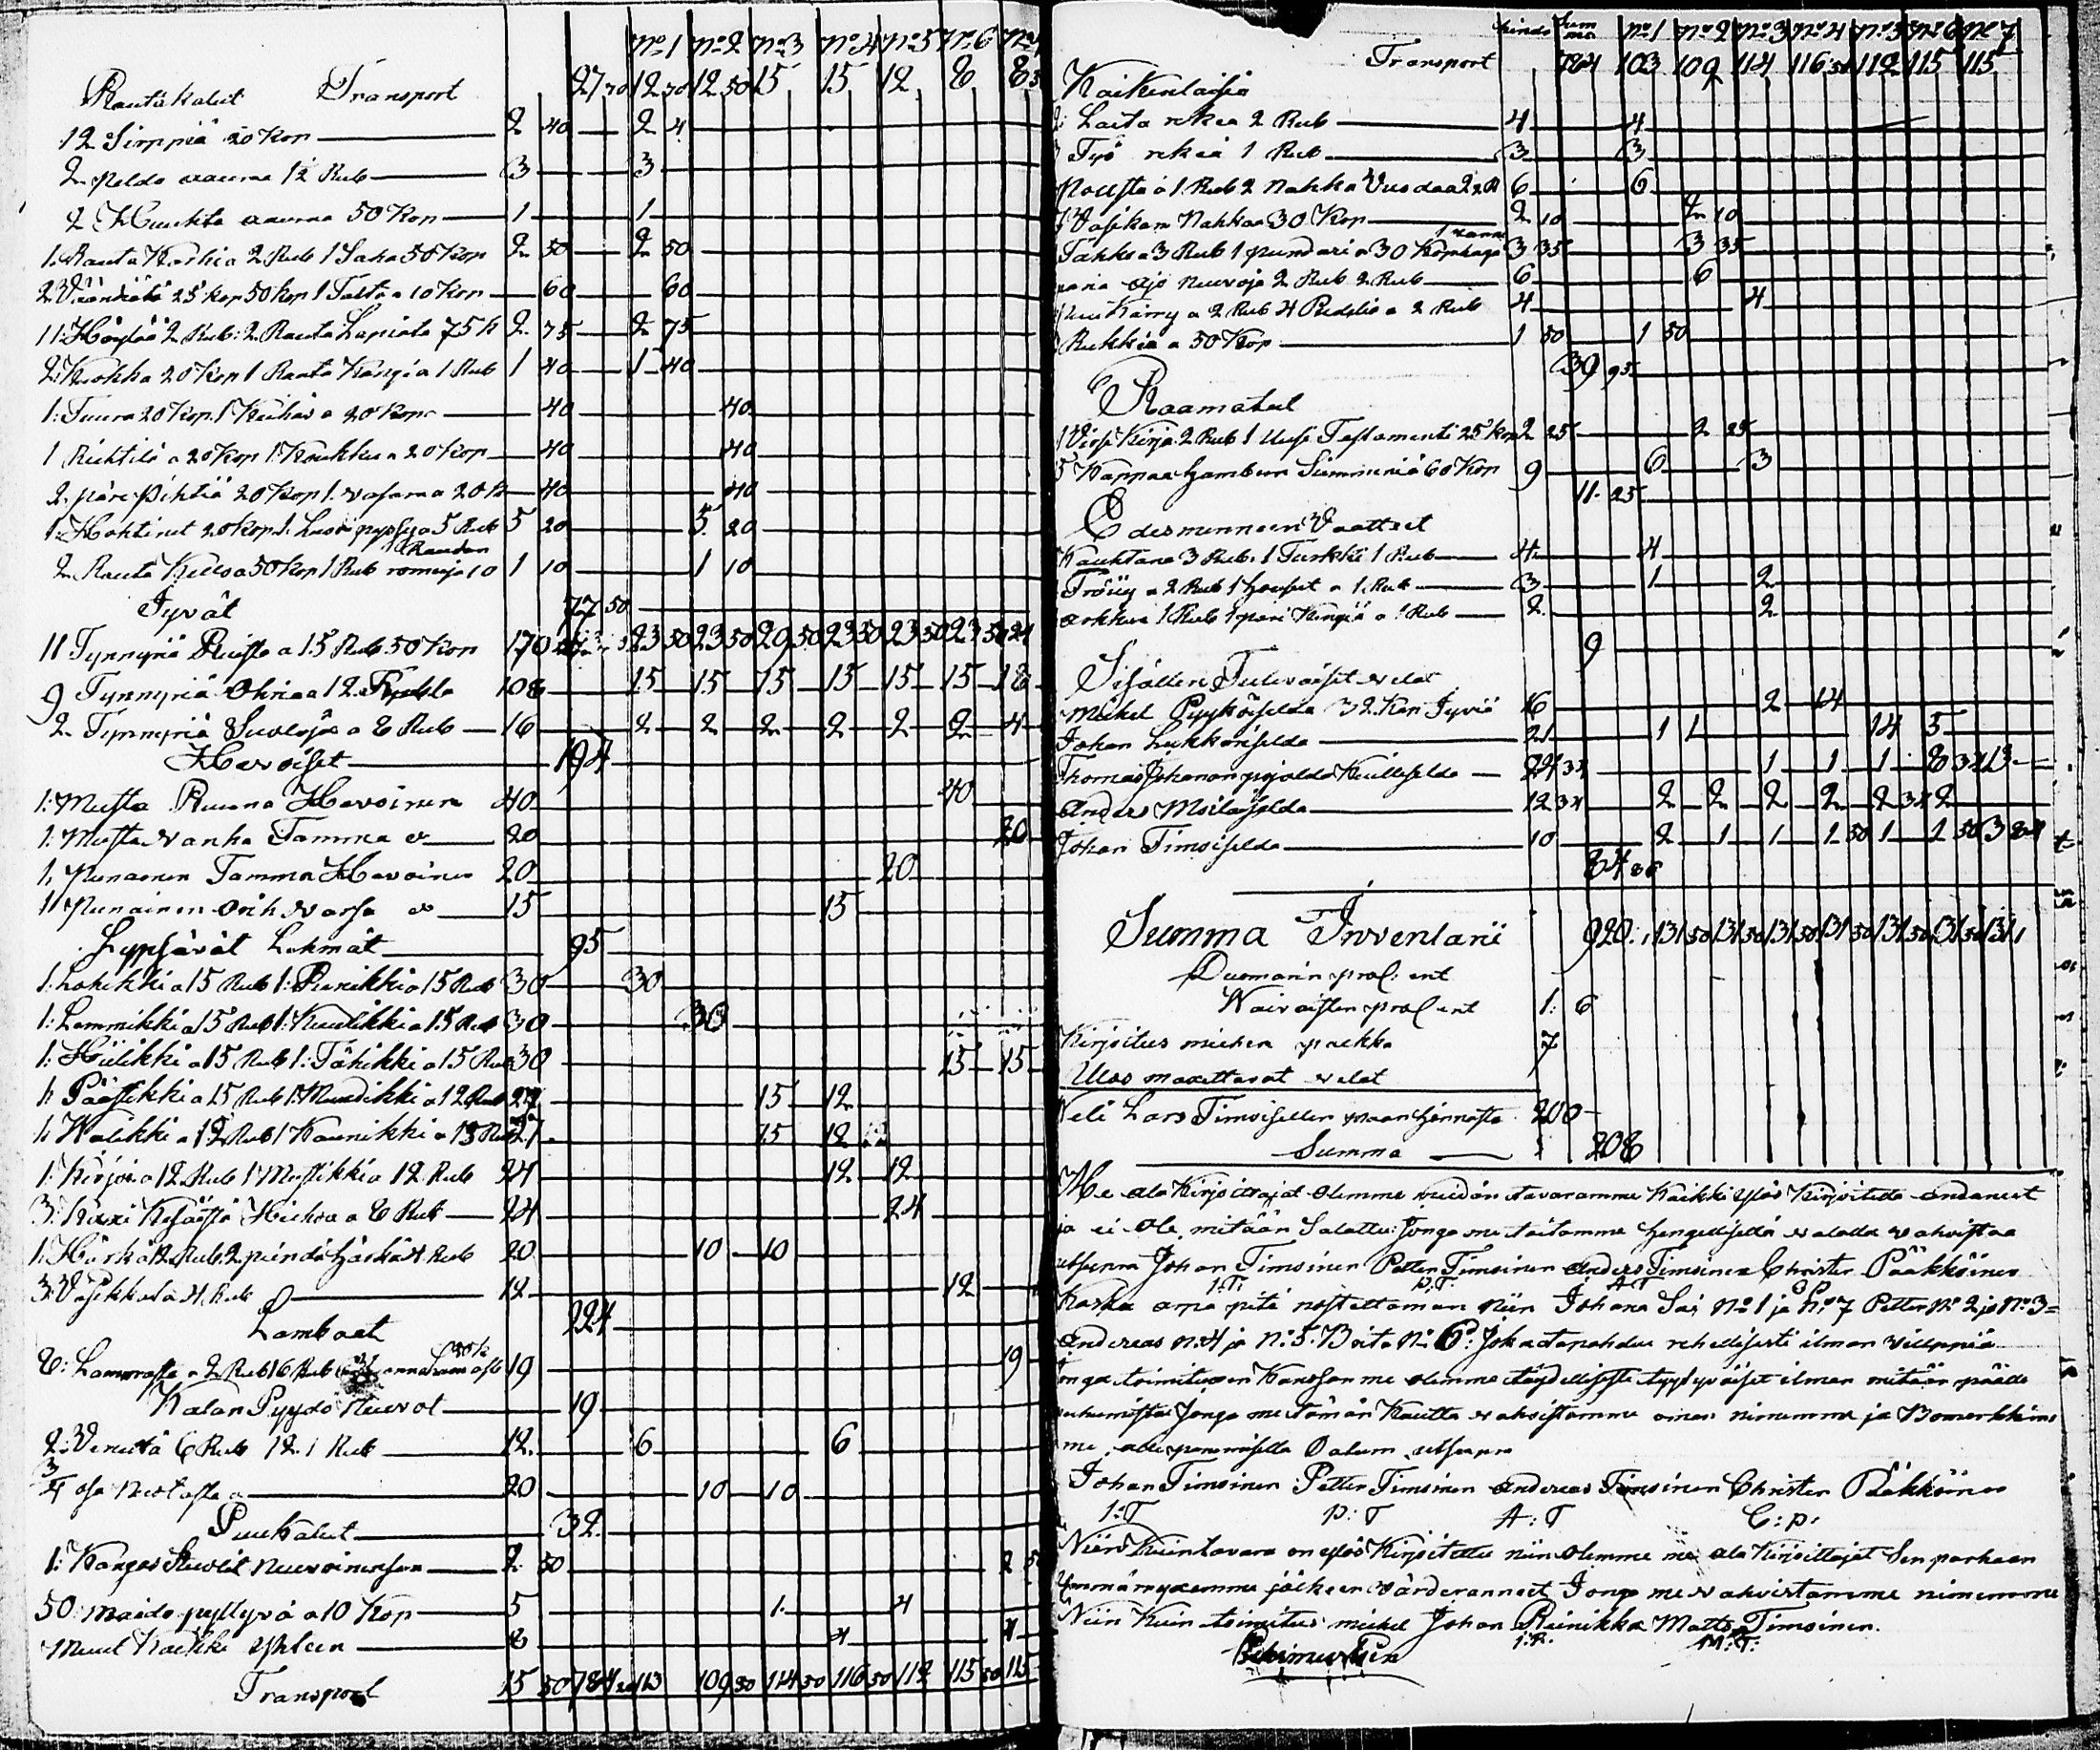 N:o 1 N:o 2 N:o 3 N:o 4 N:o 5 N:o 6 N:o 7
Rautakalut Transport 27 70 12 70 12 50 15 15 12 8 8 5
12 Sirppiä 20 Kop 2 40 2 4
2 peldo auraa 1½ Rub 3 3
2 Huuhta auraa 50 Kop 1 1
1. Rauta Karhi a 2 Rub 1 Saha 50 Kop 2 50 2 50
2 Väändiätä 25 kop 50 kop 1 Taltta 10 Kop 60 60
1 Höylää 2 Rub: 2 Rauta Lapiota 75 K 2 75 2 75
2 Kuokka 20 Kop 1 Rauta Kangi a 1 Rub 1 40 1 40
1: Tuura 20 Kop. 1 Keihäs a 20 Kop 40 40
1 Riehtilä a 20 Kop 1 Koukku a 20 Kop 40 40
2. päre pihtiä 20 Kop 1. vasara a 20 k 40 40
1: Hohtimet 20 Kop. 1. Luodi pyssy a 5 Rub 5 20 5 20
Raudan
2 Rauta Kello a 50 kop 1 Rub romuja 10 1 10 1 10
Jyvät 77 50
11 Tynnyriä Ruista a 15 Rub 50 Kop 170 23 50 23 50 29 50 23 50 23 50 23 50 24
9 Tynnyriä Ohria a 12 108 15 15 15 15 15 15 18
2 Tynnyriä Suoloja a 8 Rub 16 2 2 2 2 2 2 4
Hevoiset 194
1: Musta Ruuna Hevoinen 40 40
1: Musta vanha Tamma 20 20
1, Punainen Tamma Hevoinen 20 20
1 Punainen orih varsa 15 15
Lypsävät Lehmät 95
1. Lahikki a 15 Rub 1: Pienikki a 15 Rub 30 30
1: Lemmikki a 15 Rub 1: Kuulikki a 15 Rub 30 30
1: Hiilikki a 15 Rub 1: Tähikki a 15 Rub 30 15 15
1: Päästikki a 15 Rub 1: Muurikki a 12 Rub 27 15 12
1: Walikki a 12 Rub 1 Kaunikki a 15 Rub 27 15 12
1: Kirjo a 12 Rub 1 Mustikki a 12 Rub 24 12 12
3: Kaxi Kesäistä Hiehoa a 8 Rub 24 24
1. Härkä 12 Rub. 2 pientä härkä 4 Rub 20 10 10
3 Vasikkata 4 Rub 12 12
Lambaat 224
8: Lammasta a 2 Rub 16 Rub 19 19
Kalan Pyydö Neuvot 19
2: Venettä 6 Rub 12. 1 Rub 12. 6 6
¾ osa Nuotasta a 20 10 10
Puukalut 32
1: Kangas Stuolit Neuvoinensa 2 50 2 5
50 maido pyttyvä a 10 Kop 5 1 4
Muut Kaikki Yhteen 8 4 4
Transport 15 50 784 20 113 109 50 114 50 116 50 112 115 50 115
hindo Summa N:o 1 N:o 2 N:o 3 N:o 4 N:o 5 N:o 6 N:o 7
Transport 784 103 109 114 116 50 112 115 115
Kaikenlaisia
2: Laita rekea 2 Rub 4 4
3 Työ rekeä 1 Rub 3 3
a 1 Rub 2 Nahka Vuodaa 2 R 6 6
Vasikan Nahkaa 30 Kop 2 10 2 10
Tahko a 3 Rub 1 pundari a 30 Kop 3 35 3 35
paria ajo neuvoja 2 Rub 2 Rub 6 6
Kärry a 2 Rub 4 a 2 Rub 4 4
Rukkia a 50 Kop 1 50 1 50
39 95
Raamatut
1 Virsi Kirja 2 Rub 1 Uusi Testamenti 25 kop 2 25 2 25
5 Kappaa hambun Siemeniä 60 Kop 9 6 3
11. 25
Edesmenneen Vaatteet
Kauhtana 3 Rub. 1 Turkki 1 Rub 4 4
Tröijy a 2 Rub 1 housut a 1 Rub 3 1 2
arkku 1 Rub 1 pari Kengiä a 1 Rub 2 2
9
Sisällen Tulevaiset velat
Mickel Pyyköiseldä 32 Kop Jyviä 16 2 14
Johan Lukkariselda 21 1 1 14 5
Thomas Johanan pojalda Kuilleselda 24 34 1 1 1 8 34 13
Anders Moilaselda 12 34 2 2 2 2 2 34 2
Johan Timoiselda 10 2 1 1 1 50 1 1 50 3
84 86
Summa Inventarii 920. 131 50 131 50 131 50 131 50 131 50 131 50 131
Duomarin pros: ent
Waivaisten pros ent 1: 6
Kirjoitus miehen palkka 7
Ulos maxettavat velat
Veli Lars Timoisellen maan hinnasta 200
Summa 208
Me ala Kirjoittajat olemme meidän tavaramme Kaikki ylös Kirjoittetta andaneet
ja ei ole mitään Salattu: Jonga me taitamme hengellisellä valalla vahvistaa
utsupra Johan Timoinen Petter Timoinen Anders Timoinen Christer Pääkköinen
I:T: P:T: A T C P
Koska arpa pitä nostettaman Niin Johana Sai N:o 1 ja N:o 7 Petter N:o 2 ja N:o 3=
Andreas N:o 4 ja N:o 5. Brita N:o 6: Joka tapahdu rehellisesti ilman vilppiä
Jonga toimituxen Kanssan me olemme täydellisesti tyytyväiset ilman mitään päälle
puhumista Jonga me tämän Kautta vahvistamme omas nimemme ja Bomerkkim
me alla pannuisella Datum utsupra
Johan Timoinen Petter Timoinen Andreas Timoinen Christer Pääkköinen
I:T P:T A:T C:p:
Niin Kuin tavara on ylös Kirjoitettu niin olemme me ala Kirjoittajat Sen parhaan
Ymmäryxemme jälkeen Värderanneet Jonga me vahvistamme nimemme
Niin Kuin toimitus miehet Johan Reinikka Matts Timoinen.
I:R: M:T: